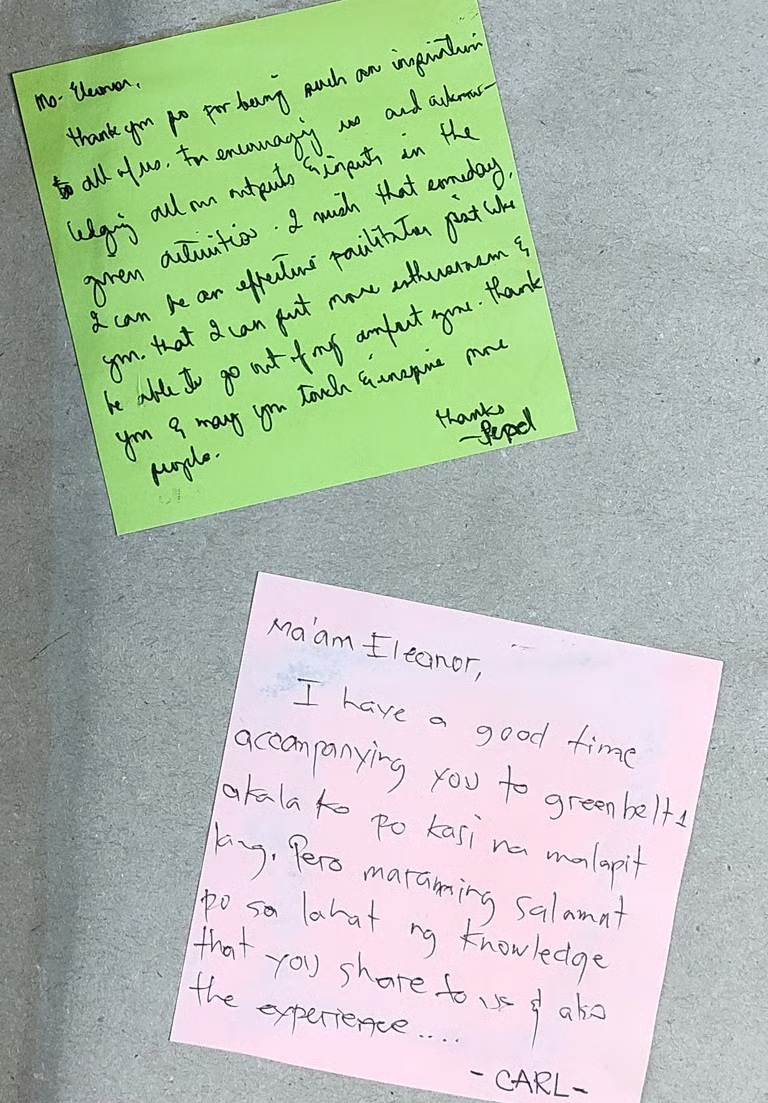 Ms. Eleanor,
Thank you po for being such an inspiration
to all of us. For encouraging us and acknow-
ledging all our outputs & inputs in the
given activities. I wish that someday,
I can be an effective facilitator just like
you. That I can put more enthusiasm &
be able to go out of my comfort zone. Thank
you & may you touch & inspire more
people.
Thanks
Ma'am Eleanor,
I have a good time
accompanying you to greenbelt 1
akala ko po kasi na malapit
lang. Pero maraming salamat
po sa lahat ng knowledge
that you share to us & also
the experience....
- CARL -